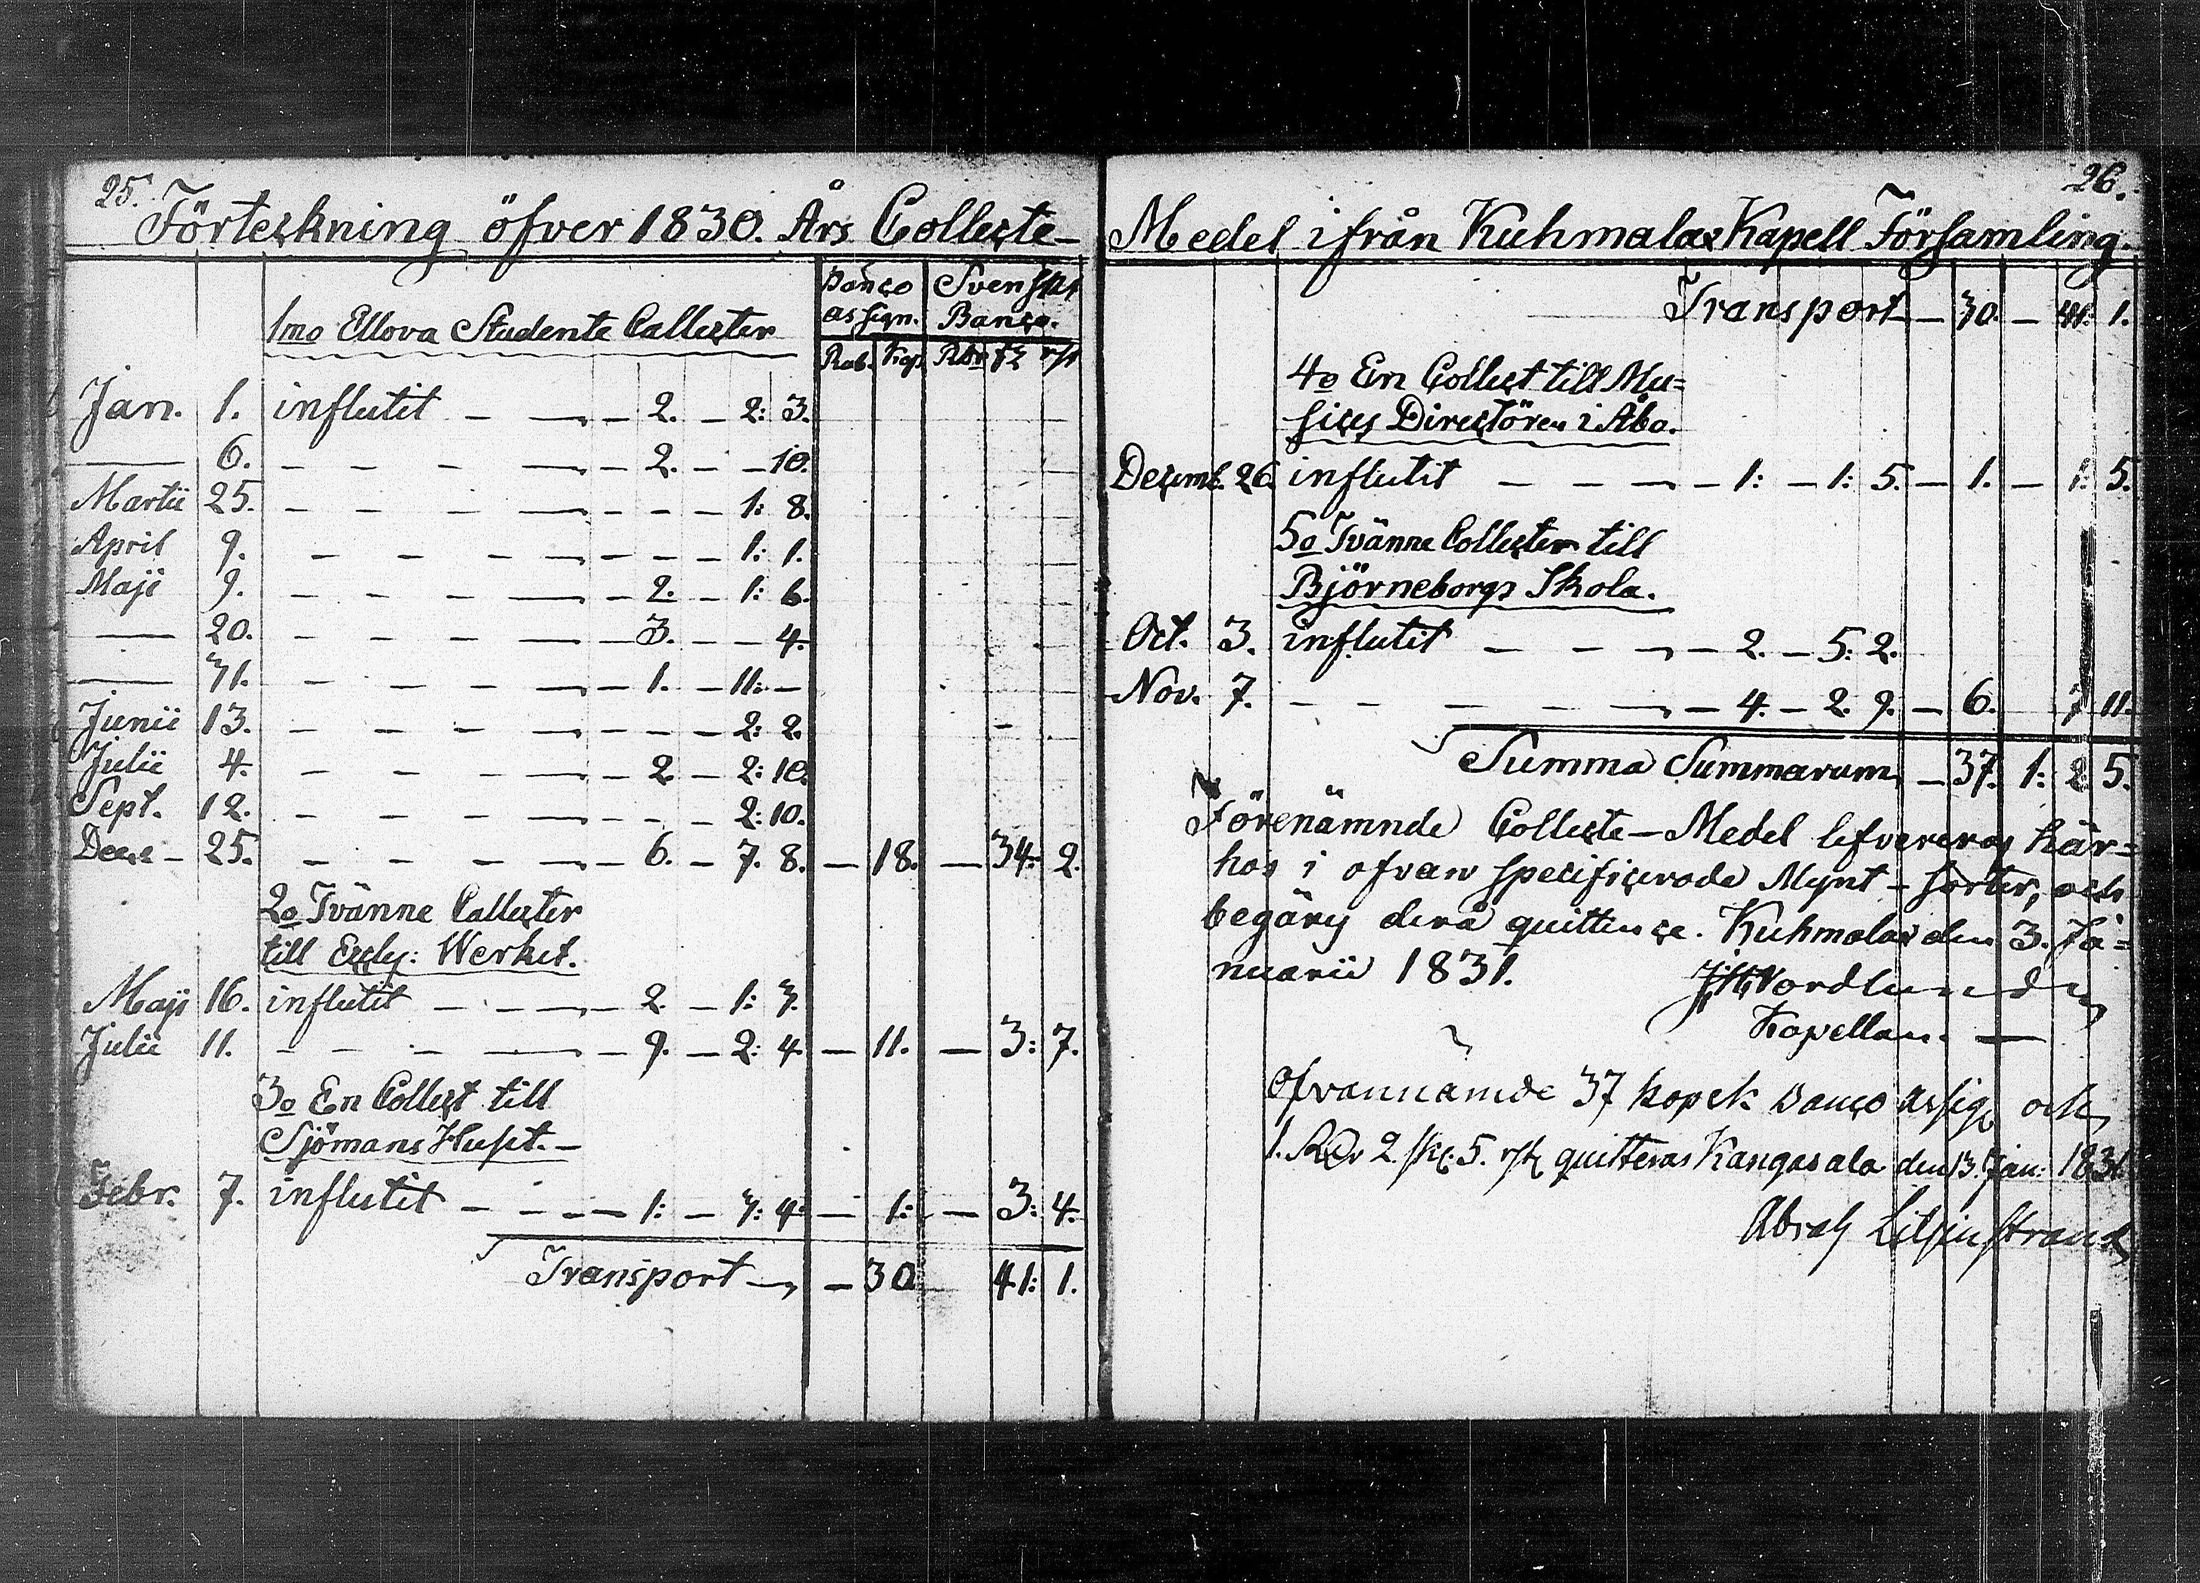 25.
Förteckning öfver 1830. Års Collecte-
Banco assign. Svenskt Banco.
1mo Ellova Studente Collecter
Rub. Kop. Rdr sk rst
Jan. 1. influtit - - 2. - 2: 3.
— 6. - - - - - 2. - - 10.
Martii 25. - - - - - - - 1: 8.
April 9. - - - - - - - 1: 1.
Maji 9. - - - - - 2. - 1: 6.
— 20. - - - - - 3. - - 4.
— 31. - - - - - 1. - 11: -
Junii 13. - - - - - - - 2: 2.
Julii 4. - - - - - 2. - 2: 10.
Sept. 12. - - - - - - - 2: 10.
Dec. - 25. - - - - - 6. - 7. 8. - 18. - 34: 2.
2o Tvänne Collecter
till Eccly: Werket.
Maji 16. influtit - - - 2. - 1: 3.
Julii 11. - - - - - 9. - 2: 4. - 11. - 3: 7.
3o En Collect till
Sjömans Huset. -
Febr. 7. influtit - - - 1: - 3: 4. - 1: - 3: 4.
Transport - - 30. 41: 1.
26.
Medel ifrån Kuhmalax Kapell Församling.
Transport - 30. - 41: 1.
4o En Collect till Mu=
sices Directören i Åbo.
Decemb. 26. influtit - - - - 1: - 1: 5. - 1. - 1: 5.
5o Tvänne Collecter till
Björneborgs Skola.
Oct. 3. influtit - - - - 2. - 5: 2.
Nov. 7. - - - - - 4. - 2. 9. - 6. 7 11.
Summa Summarum, - 37. 1: 2: 5.
Förenämnde Collecte-Medel lefvereras här=
hos i ofvan specificerade Mynt-sorter, och
begärs derå quittence. Kuhmalax den 3. Ja=
nuarii 1831. Nordlund
Kapellan. —
Ofvannämde 37 kopek Banco Assig och
1. Rdr 2. sk. 5. rst quitteras Kangasala den 13. Jan: 1831
Abrah Liljinstrand